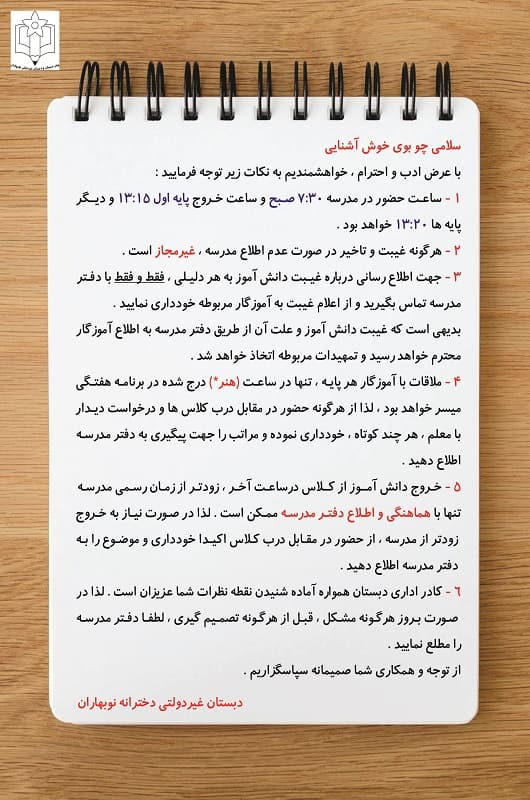 سلامی چو بوی خوش آشنایی
با عرض ادب و احترام ، خواهشمندیم به نکات زیر توجه فرمایید :
۱ - ساعت حضور در مدرسه ۷:۳۰ صبح و ساعت خروج پایه اول ۱۳:۱۵ و دیگر
پایه ها ۱۳:۲۰ خواهد بود .
۲ - هرگونه غیبت و تاخیر در صورت عدم اطلاع مدرسه ، غیرمجاز است .
۳ - جهت اطلاع رسانی درباره غیبت دانش آموز به هر دلیلی ، فقط و فقط با دفتر
مدرسه تماس بگیرید و از اعلام غیبت به آموزگار مربوطه خودداری نمایید .
بدیهی است که غیبت دانش آموز و علت آن از طریق دفتر مدرسه به اطلاع آموزگار
محترم خواهد رسید و تمهیدات مربوطه اتخاذ خواهد شد .
۴ - ملاقات با آموزگار هر پایه ، تنها در ساعت (هنر*) درج شده در برنامه هفتگی
میسر خواهد بود ، لذا از هرگونه حضور در مقابل درب کلاس ها و درخواست دیدار
با معلم ، هر چند کوتاه ، خودداری نموده و مراتب را جهت پیگیری به دفتر مدرسه
اطلاع دهید .
۵ - خروج دانش آموز از کلاس درساعت آخر ، زودتر از زمان رسمی مدرسه
تنها با هماهنگی و اطلاع دفتر مدرسه ممکن است . لذا در صورت نیاز به خروج
زودتر از مدرسه ، از حضور در مقابل درب کلاس اکیدا خودداری و موضوع را به
دفتر مدرسه اطلاع دهید .
۶ - کادر اداری دبستان همواره آماده شنیدن نقطه نظرات شما عزیزان است . لذا در
صورت بروز هرگونه مشکل ، قبل از هرگونه تصمیم گیری ، لطفا دفتر مدرسه
را مطلع نمایید .
از توجه و همکاری شما صمیمانه سپاسگزاریم .
دبستان غیردولتی دخترانه نوبهاران